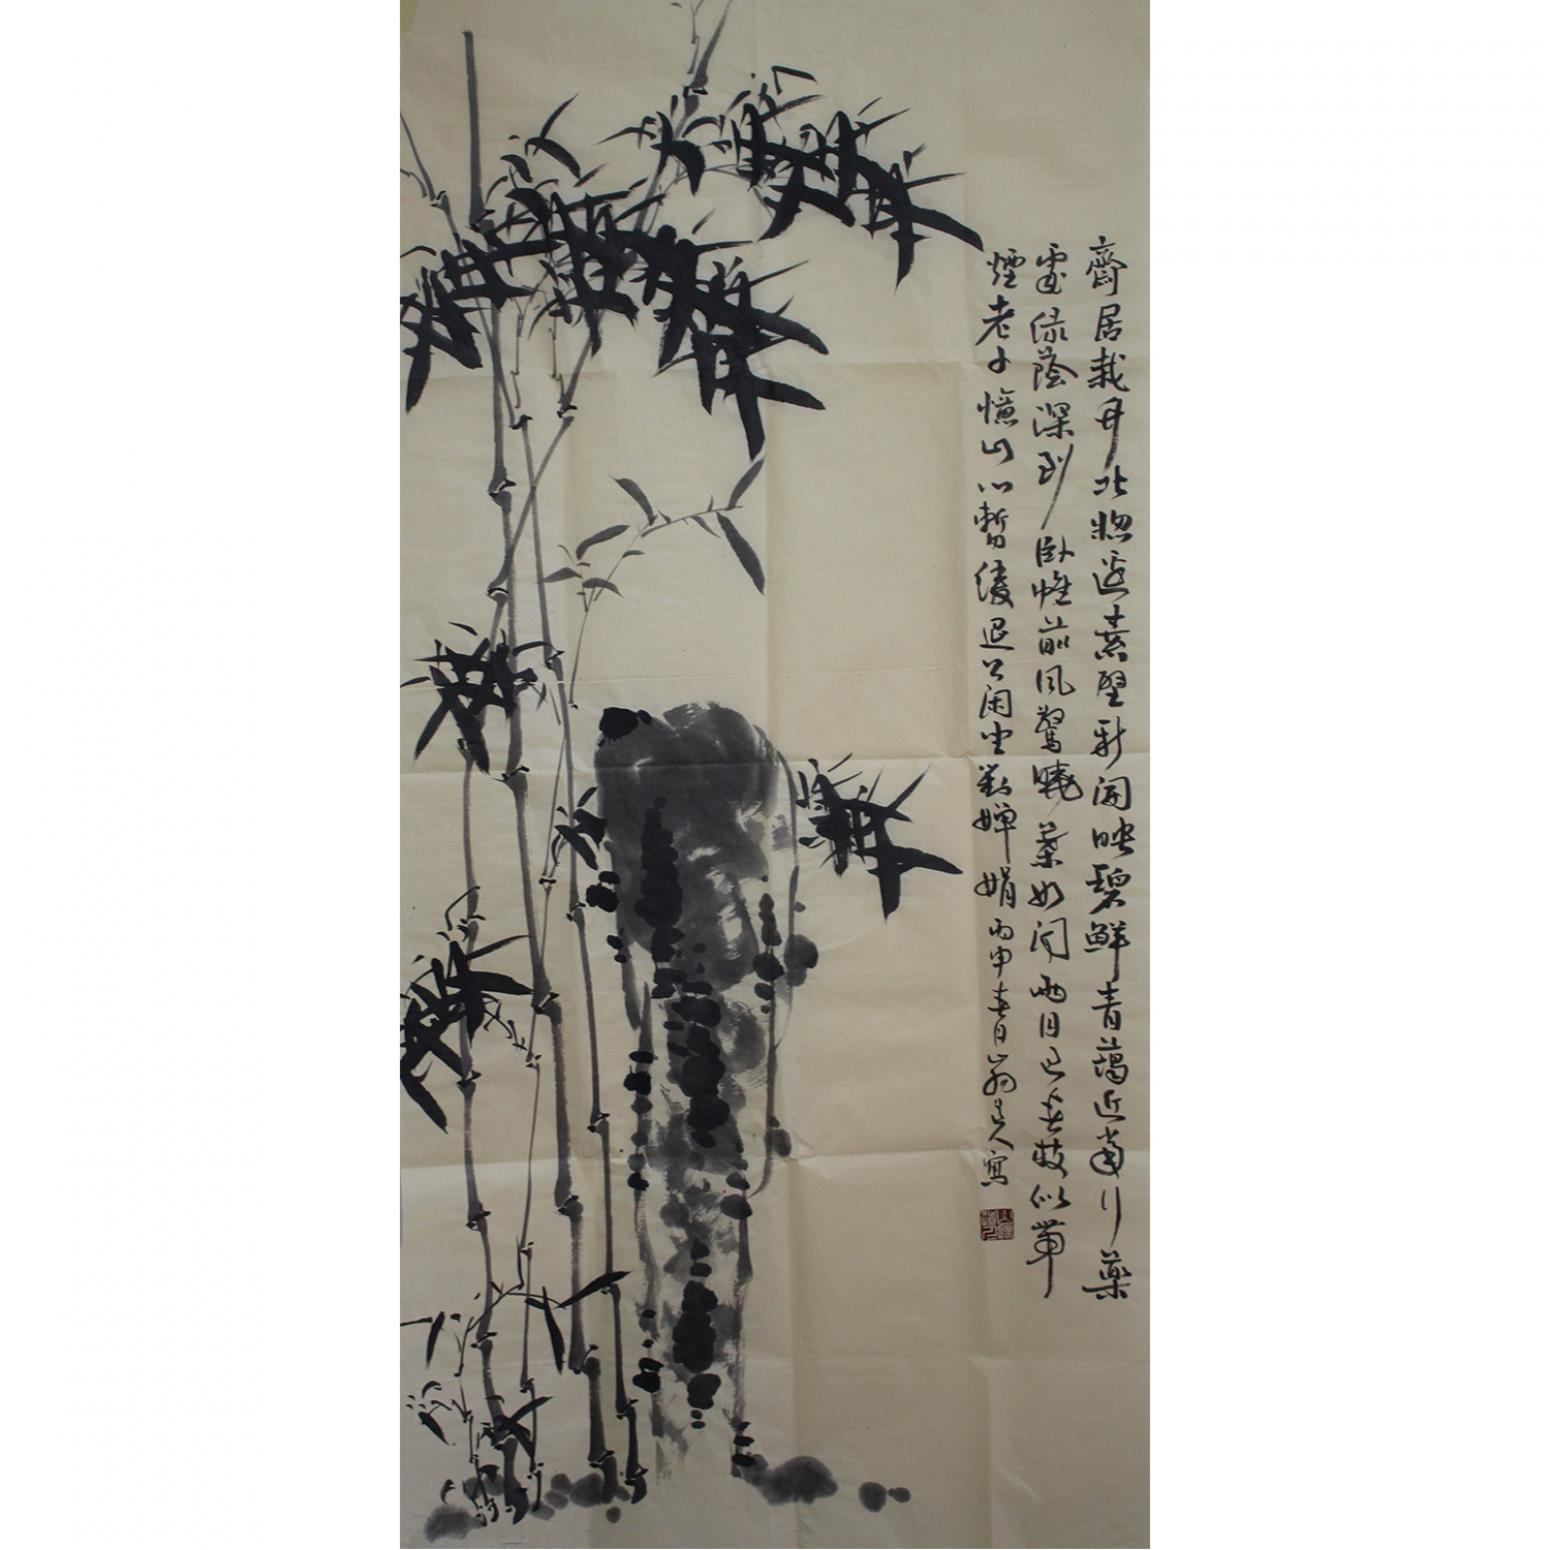 齋居栽竹北窗邊素壁新開映碧鮮青藹近當行藥
處綠蔭深到臥帷前風驚曉葉如聞雨月過春枝似帶
煙老子憶山心暫緩退公閑坐對嬋娟丙申春月人寫